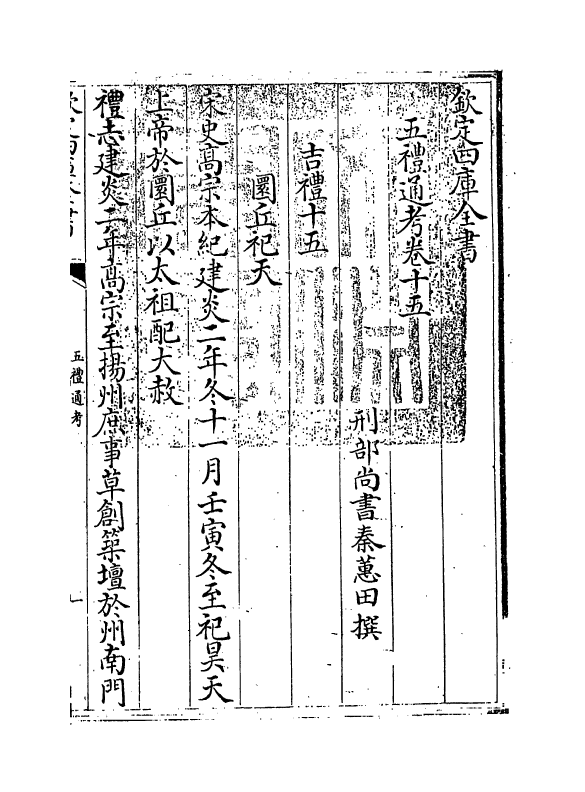 欽定四庫全書
五禮通考卷十五
刑部尚書秦蕙田撰
吉禮十五
圜丘祀天
宋史高宗本紀建炎二年冬十一月壬寅冬至祀昊天
上帝於圜丘以太祖配大赦
禮志建炎二年高宗至揚州庶事草創築壇於州南門
五禮通考
一